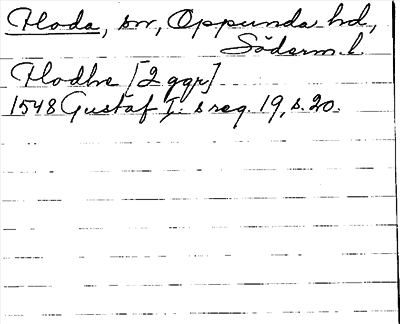 Floda, sn, Oppunda hd,
Söderm. l.
Flodhe [2 ggr]
1548 Gustaf I:s reg. 19, s. 20.